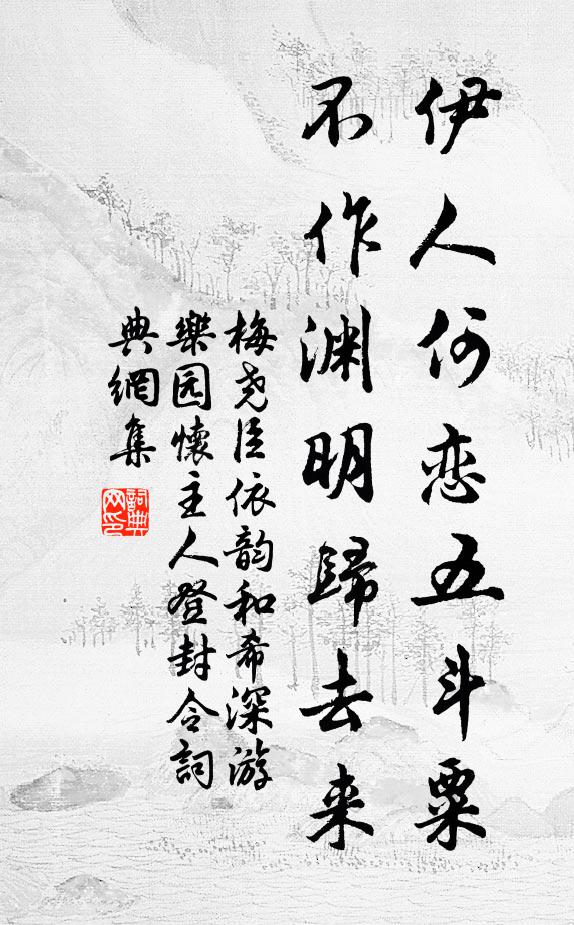 伊人何恋五斗粟
不作渊明歸去来
梅尧臣依韵和希深游
樂园懷主人登封令詞
典網集
詞典网印